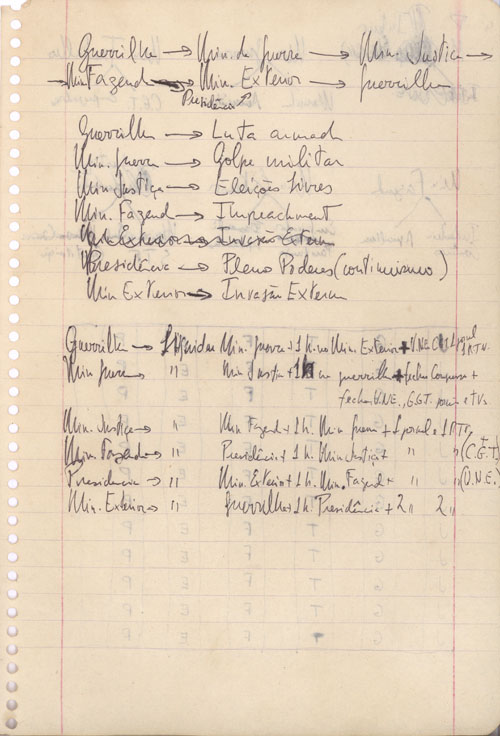 Guerrilha → Min. de guerra → Min. Justiça →
→ Min Fazend → Min. Exterior → guerrilha
Presidência?
Guerrilh → Luta armad
Min. guerra → Golpe militar
Min Justiça → Eleições Livres
Min. Fazend → Impeachment
Min Exterior → Invasão Extern
Presidência → Pleno Poderes (continuismo)
Min Exterior → Invasão Extern
Guerrilh → Liquidar Min. guerra + 1 h. no Min. Exterior + U.N.E. 1 jornal 1 R.T.V.
Min guerra → " Min Justiça + 1 h na guerrilha + fechar Congresso +
fechar U.N.E., C.G.T. jornais e tvs.
Min. Justiça → " Min Fazend + 1 h. Min guerra + 1 jornal e 1 RTV,
Min. Fazend → " Presidência + 1 h. Min Justiça + " " (C.G.T)
Presidencia → " Min. Exterior + 1 h. Min. Fazend + " " (U.N.E.)
Min. Exterior → " guerrilha + 1 h. Presidência + 2 " 2 "